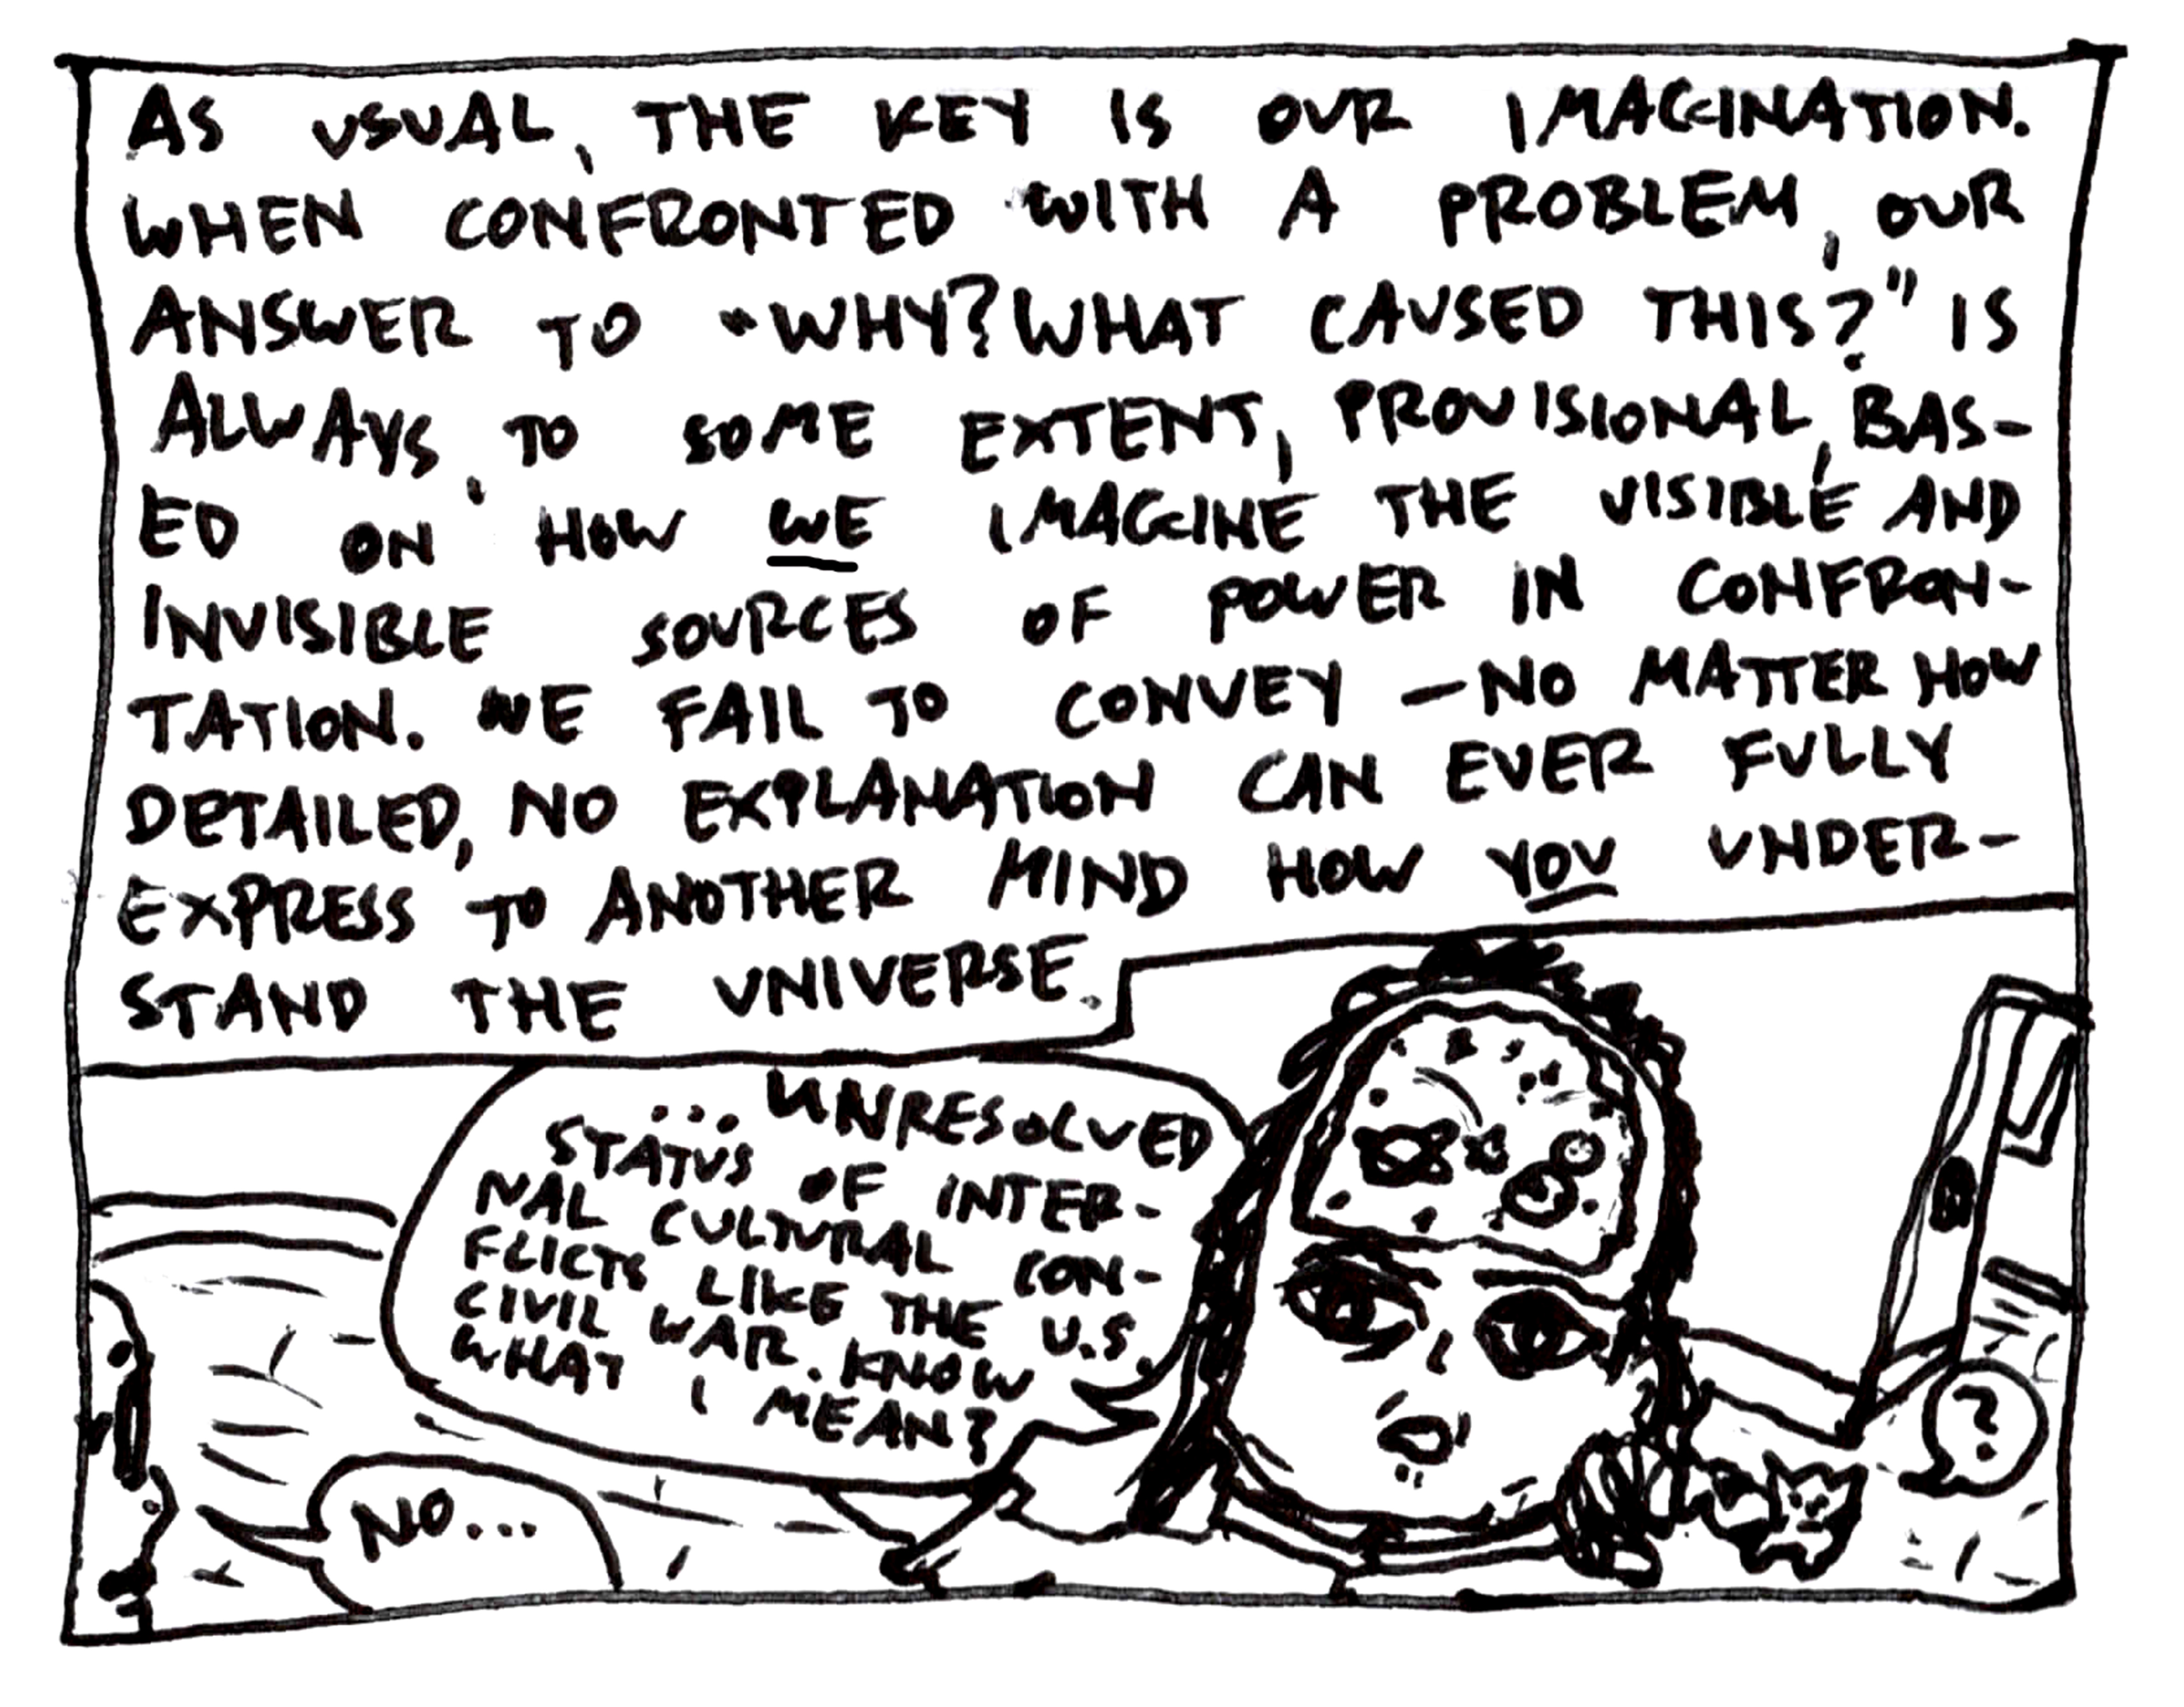 AS USUAL, THE KEY IS OUR IMAGINATION.
WHEN CONFRONTED WITH A PROBLEM, OUR
ANSWER TO "WHY? WHAT CAUSED THIS?" IS
ALWAYS, TO SOME EXTENT, PROVISIONAL, BAS-
ED ON HOW WE IMAGINE THE VISIBLE AND
INVISIBLE SOURCES OF POWER IN CONFRON-
TATION. WE FAIL TO CONVEY — NO MATTER HOW
DETAILED, NO EXPLANATION CAN EVER FULLY
EXPRESS TO ANOTHER MIND HOW YOU UNDER-
STAND THE UNIVERSE.
... UNRESOLVED
STATUS OF INTER-
NAL CULTURAL CON-
FLICTS LIKE THE U.S.
CIVIL WAR. KNOW
WHAT I MEAN?
NO...
?